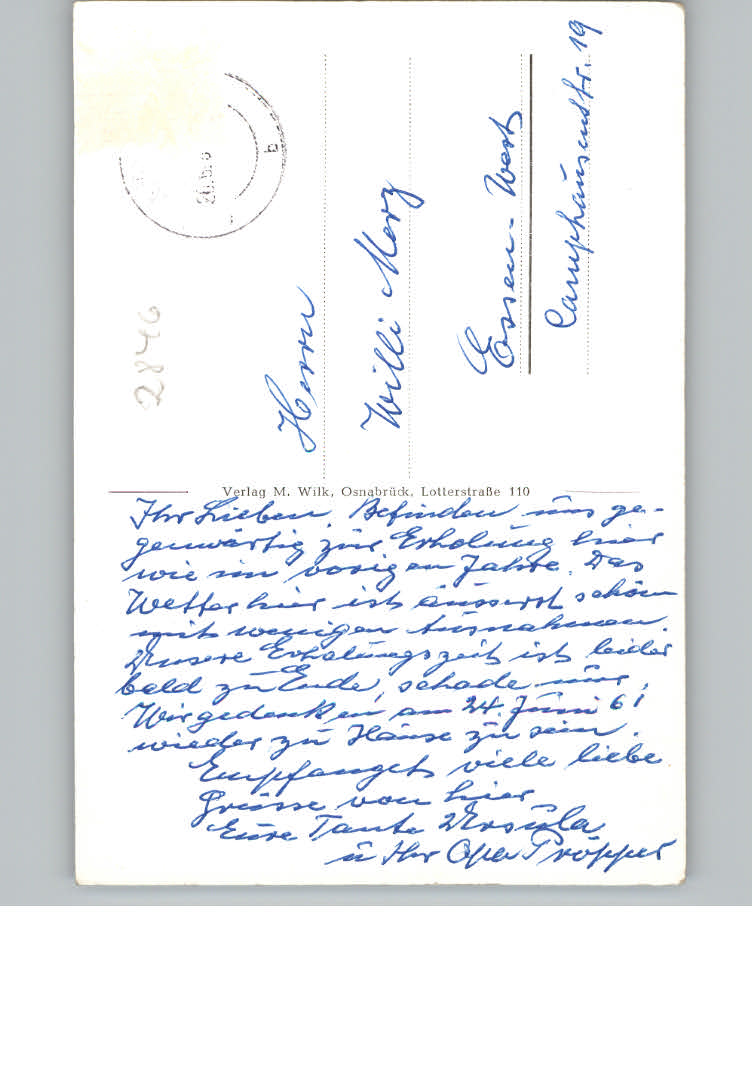 2846
b
Herrn
Willi Merz
Essen-West
Camphausenstr. 19
Verlag M. Wilk, Osnabrück, Lotterstraße 110
Ihr Lieben. Befinden uns ge-
genwärtig zur Erholung hier
wie im vorigen Jahre. Das
Wetter hier ist äusserst schön
mit wenigen Ausnahmen.
Unsere Erholungszeit ist leider
bald zu Ende, schade nur,
Wir gedenken am 24. Juni 61
wieder zu Hause zu sein.
Empfanget viele liebe
Grüsse von hier
Eure Tante Ursula
u Ihr Opa Pröpper